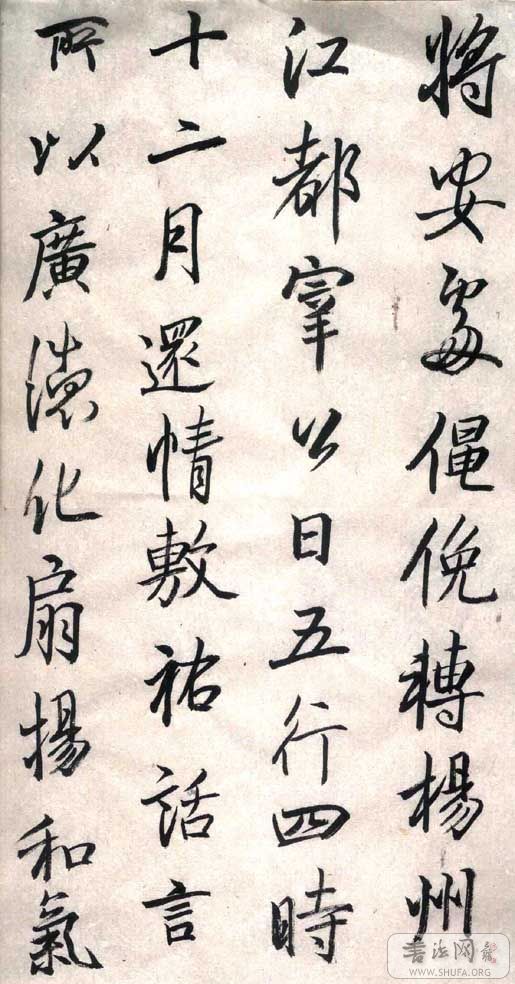 將安處僶俛轉楊州
江都宰公日五行四時
十二月還情敷祐話言
所以廣德化扇揚和氣
書法网
WWW.SHUFA.ORG